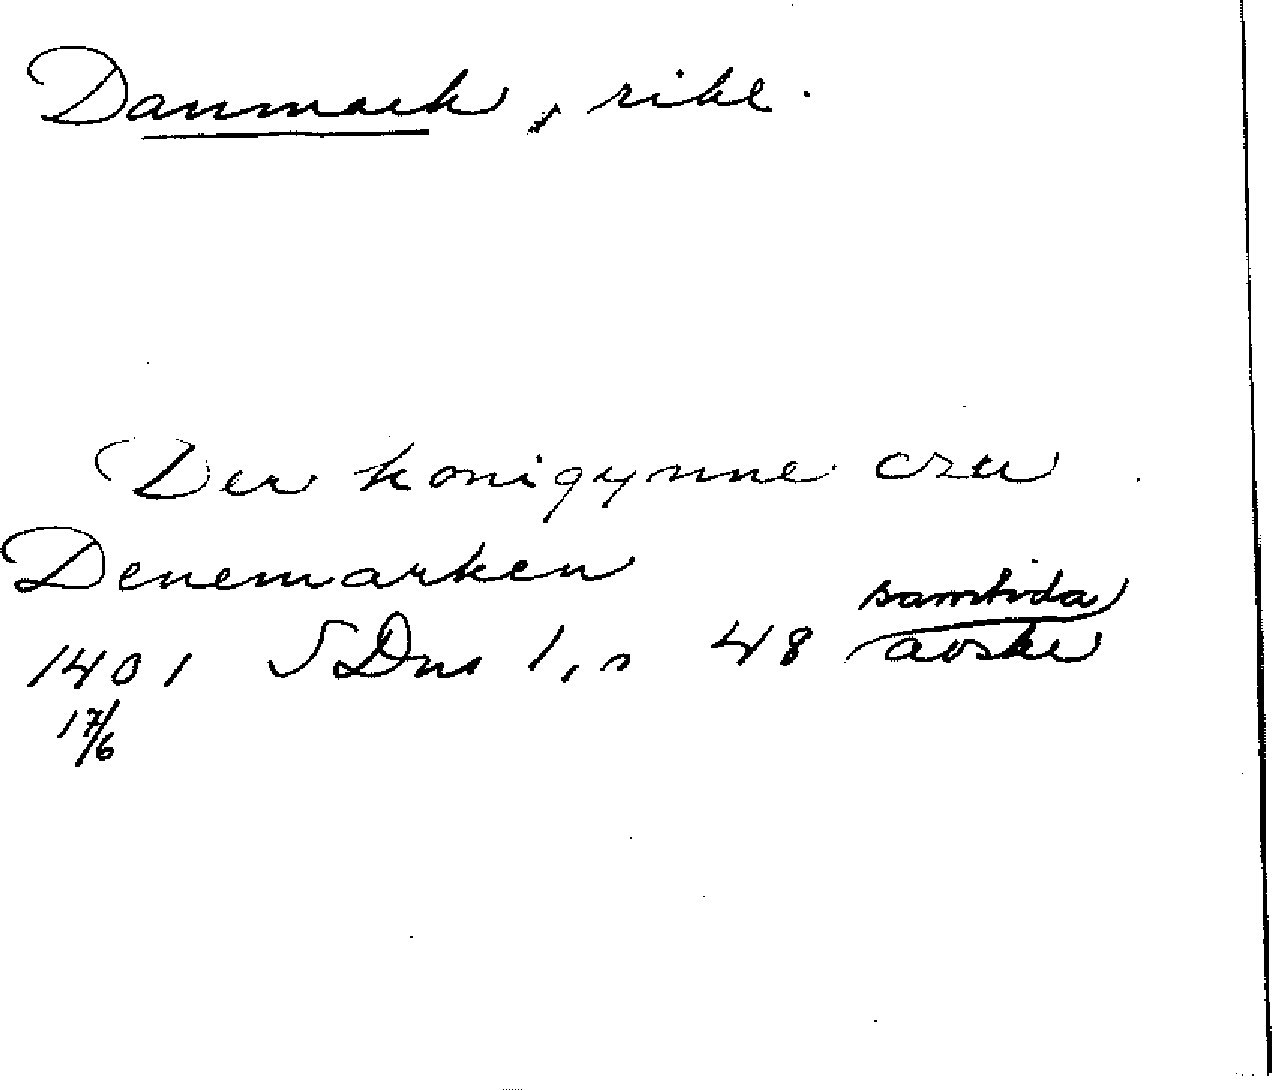 Danmark, rike.
Der konigynne czu
Denemarken
1401 SDns 1, s 48 samtida
avskr
17/6